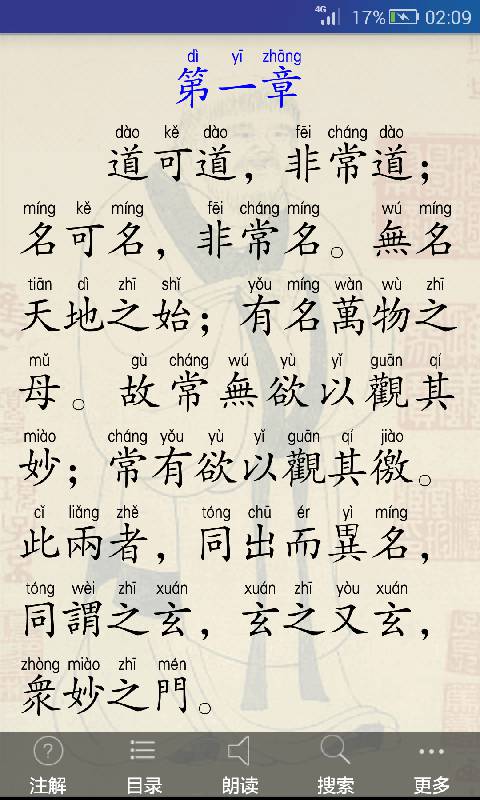 4G 17% 02:09
dì yī zhāng
第一章
dào kě dào fēi cháng dào
道可道，非常道；
míng kě míng fēi cháng míng wú míng
名可名，非常名。無名
tiān dì zhī shǐ yǒu míng wàn wù zhī
天地之始；有名萬物之
mǔ gù cháng wú yù yǐ guān qí
母。故常無欲以觀其
miào cháng yǒu yù yǐ guān qí jiào
妙；常有欲以觀其徼。
cǐ liǎng zhě tóng chū ér yì míng
此兩者，同出而異名，
tóng wèi zhī xuán xuán zhī yòu xuán
同謂之玄，玄之又玄，
zhòng miào zhī mén
衆妙之門。
注解 目录 朗读 搜索 更多